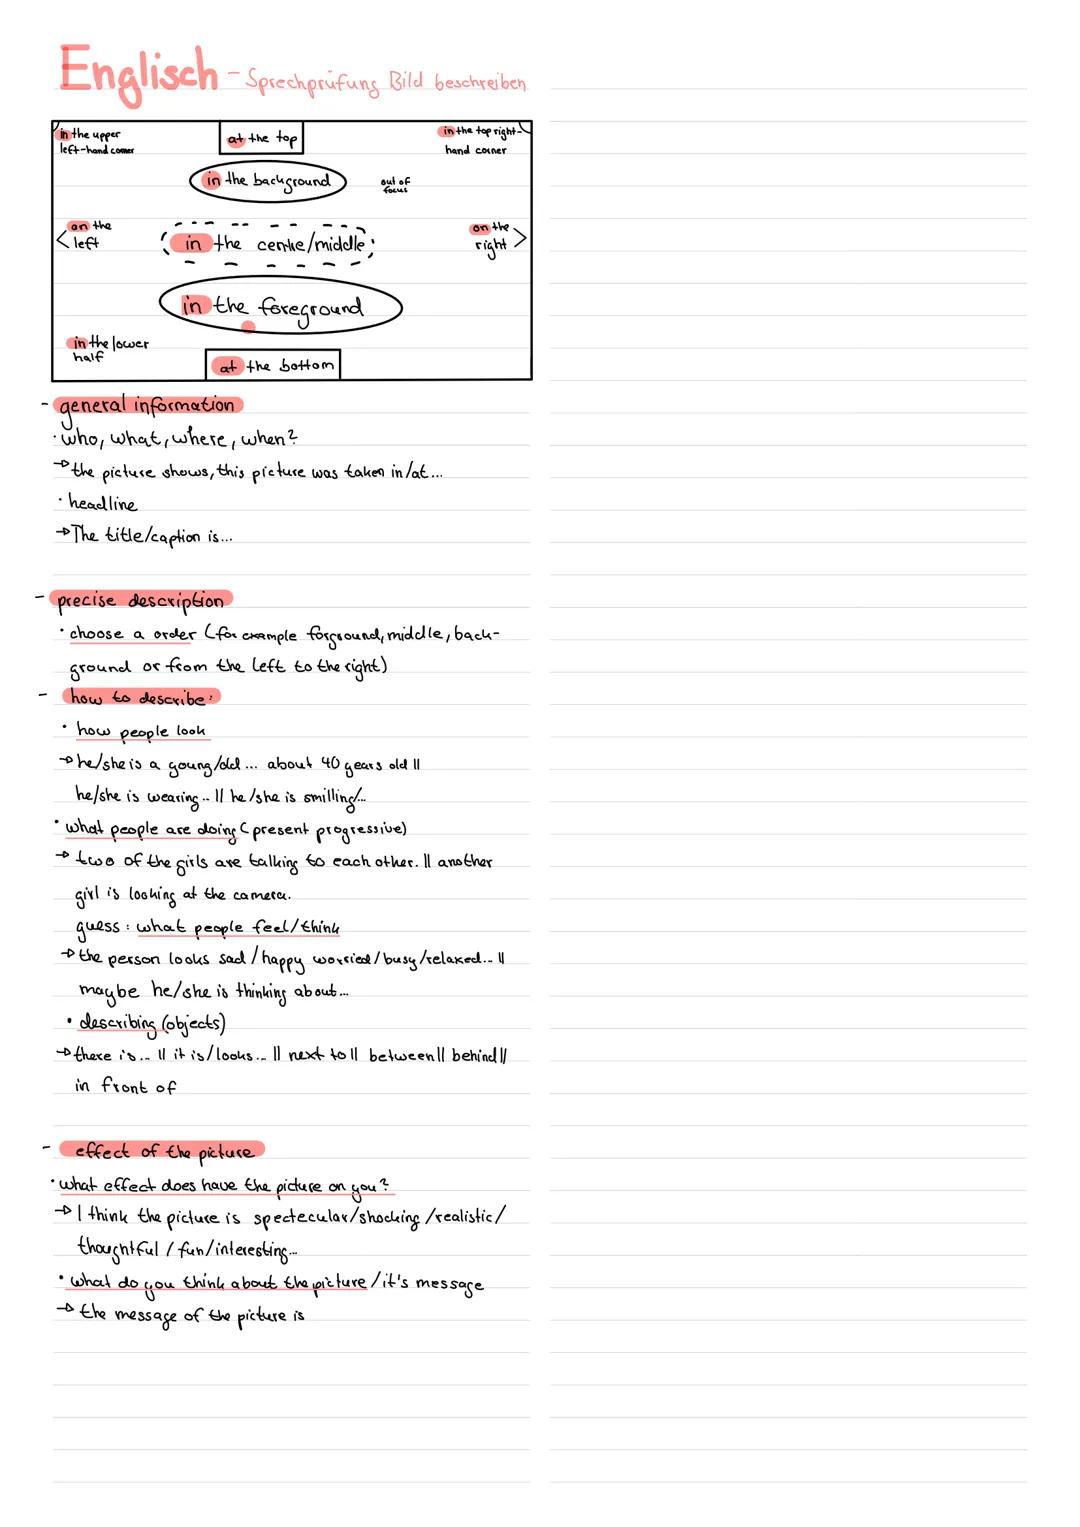 Englisch - Sprechprüfung Bild beschreiben
in the upper
left-hand corner
at the top
in the top right-
hand corner
in the background
out of
focus
on the
left
in the centre/middle
on the
right
in the foreground
in the lower
half
at the bottom
- general information
· who, what, where, when?
→ the picture shows, this picture was taken in/at...
· headline
→ The title/caption is...
- precise description
· choose a order (for example forground, middle, back-
ground or from the left to the right)
- how to describe:
· how people look
→ he/she is a young/old ... about 40 years old ||
he/she is wearing .. || he/she is smilling/...
· what people are doing (present progressive)
→ two of the girls are talking to each other. || another
girl is looking at the camera.
guess: what people feel/think
→ the person looks sad/happy worried/busy/relaxed... ||
maybe he/she is thinking about...
· describing (objects)
→ there is... || it is/looks... || next to || between || behind ||
in front of
- effect of the picture
· what effect does have the picture on you?
→ I think the picture is spectecular/shocking/realistic/
thoughtful/fun/interesting...
· what do you think about the picture/it's message
→ the message of the picture is